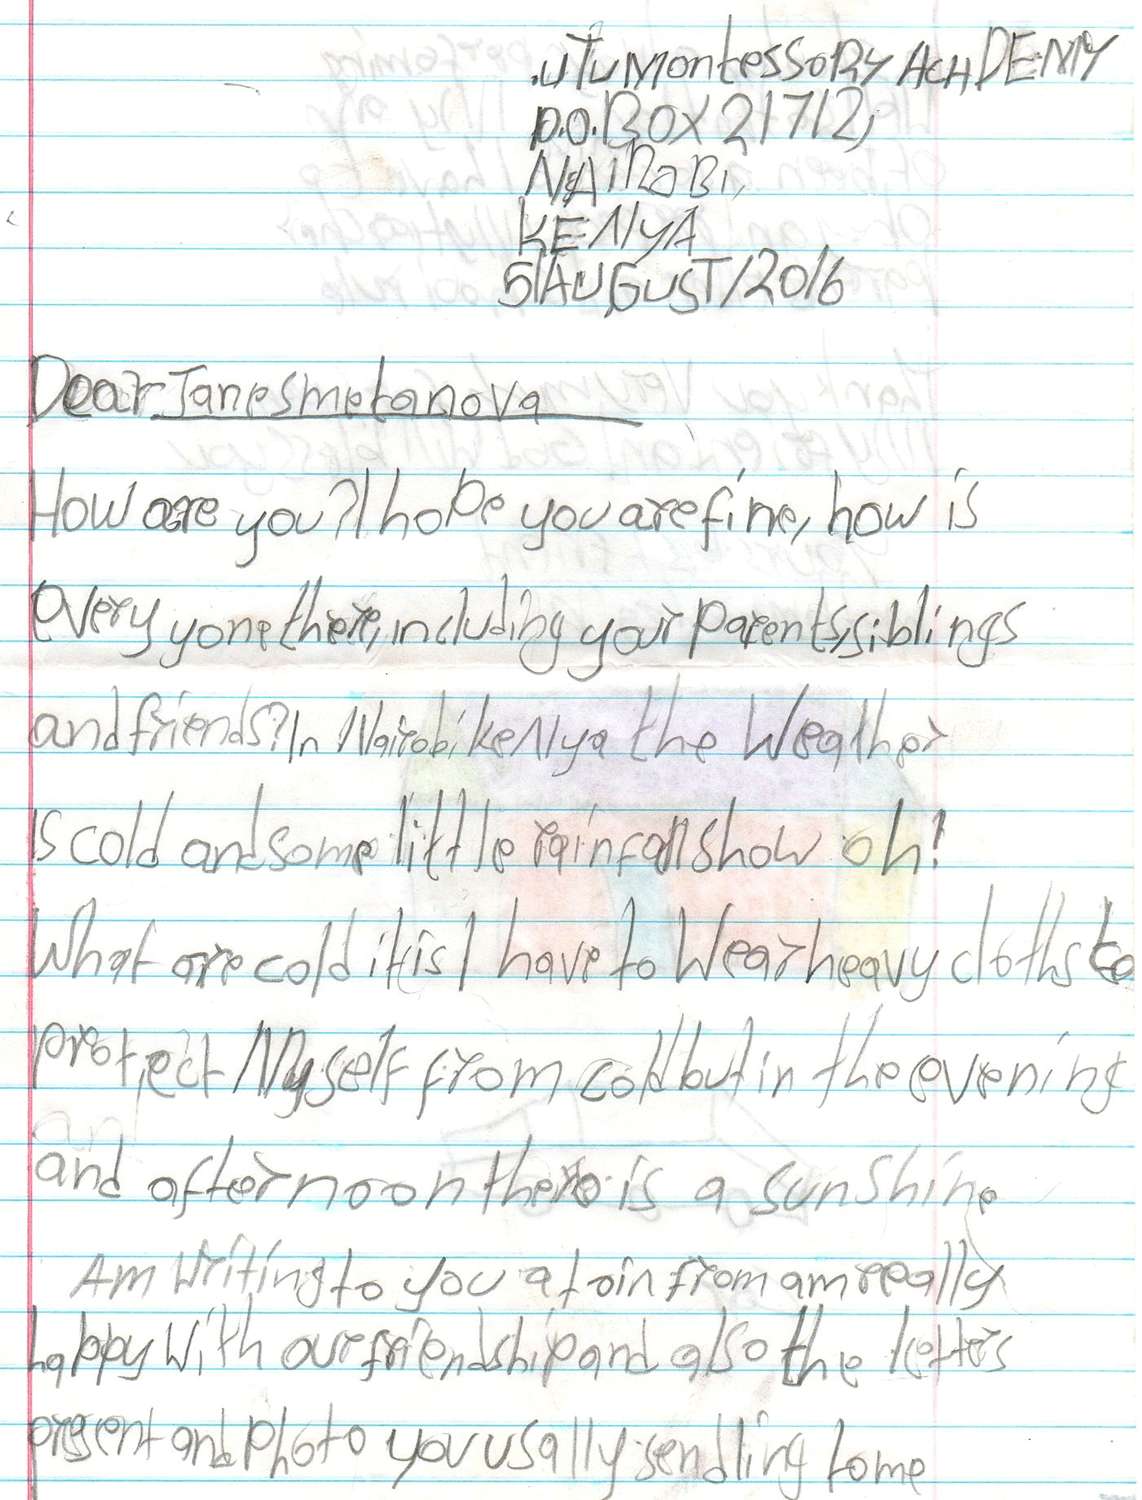 .UTU Montessory ACHDEMY
P.O.BOX 21712,
NAIROBI,
KENYA
5/AUGUST/2016
Dear Jane smetanova
How are you? I hope you are fine, how is
every yone there, including your parents, siblings
and friends? In Nairobi kenya the Weather
is cold and some little rainfall show oh!
What are cold it is I have to Wear heavy cloths to
protject Myself from cold but in the evening
and afternoon there is a sunshine
Am Writing to you a toinfrom am really
happy With our friendship and also the letters
present and photo you usally sendling to me